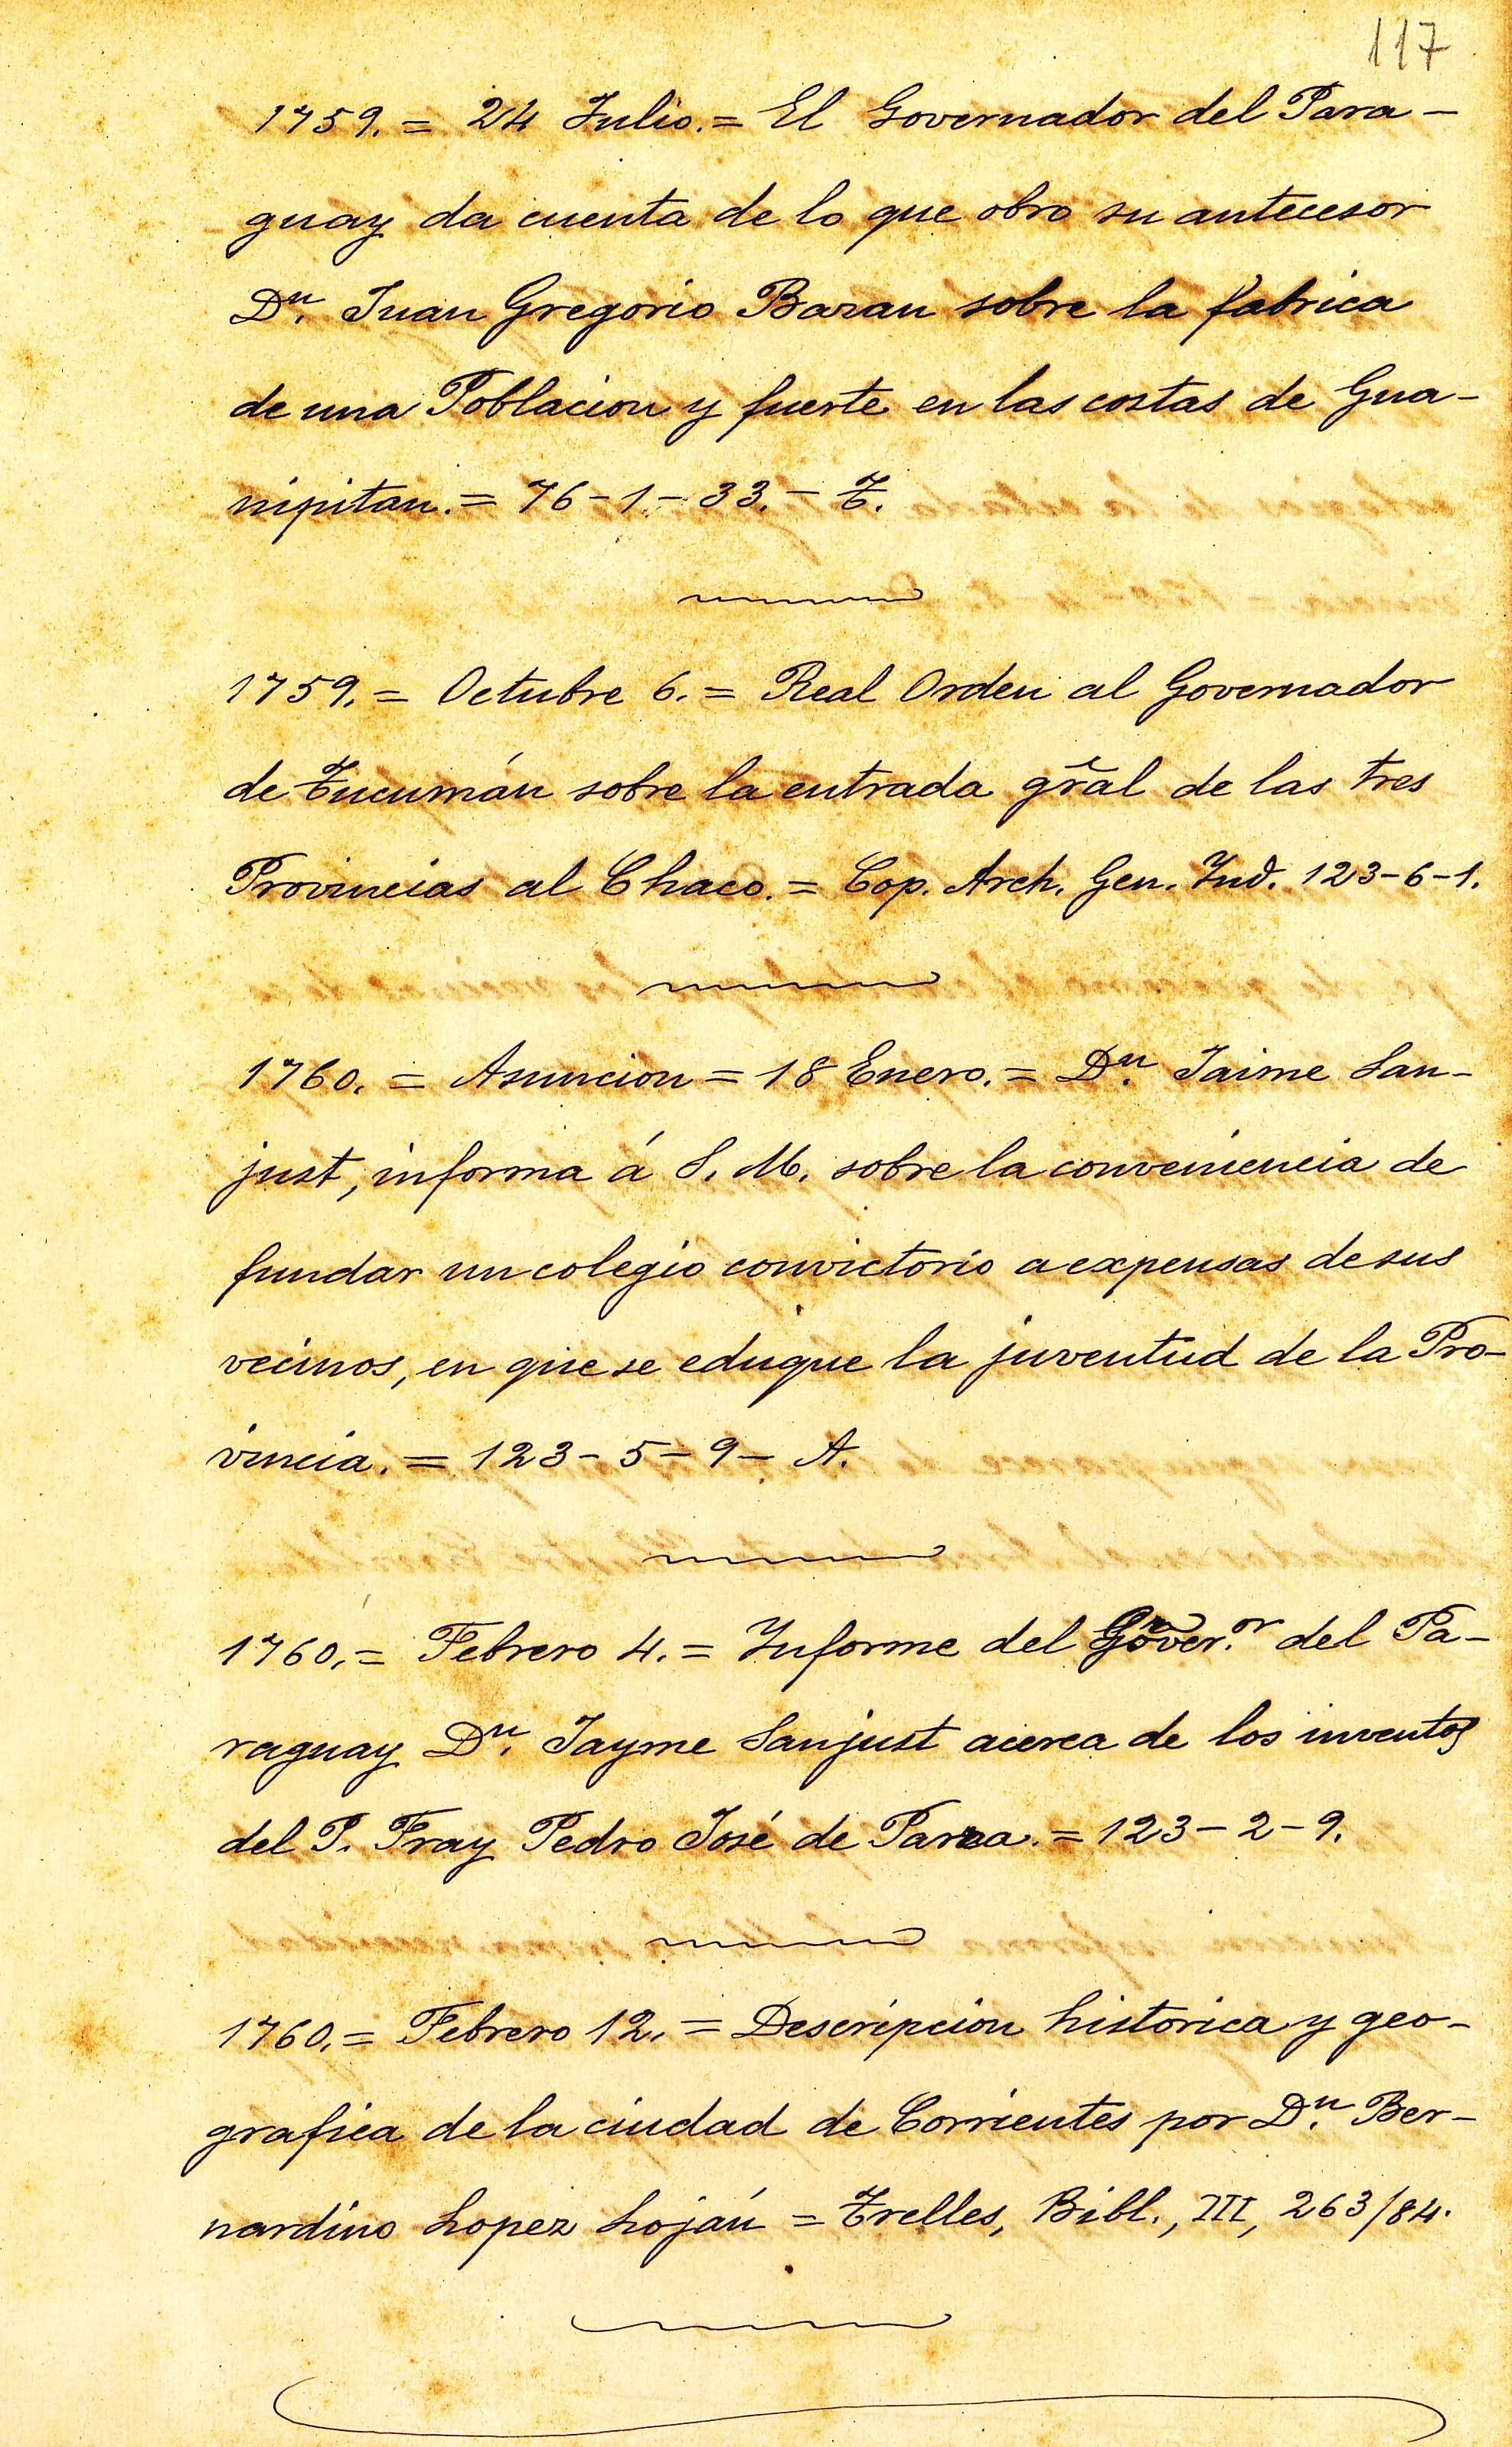 117
1759. = 24 Julio. = El Governador del Para-
guay da cuenta de lo que obro su antecesor
Dn. Juan Gregorio Bazan sobre la fabrica
de una Poblacion y fuerte en las costas de Gua-
nipitan. = 76-1-33.- T.
1759. = Octubre 6. = Real Orden al Governador
de Tucumán sobre la entrada gr̃al de las tres
Provincias al Chaco. = Cop. Arch. Gen. Ind. 123-6-1.
1760. = Asuncion = 18 Enero. = Dn. Jaime San-
just, informa á S. M. sobre la conveniencia de
fundar un colegio convictorio a expensas de sus
vecinos, en que se eduque la juventud de la Pro-
vincia. = 123-5-9- A.
1760. = Febrero 4. = Informe del Gover.or del Pa-
raguay Dn. Jayme Sanjust acerca de los inventos
del P. Fray Pedro José de Parra. = 123-2-9.
1760. = Febrero 12. = Descripcion historica y geo-
grafica de la ciudad de Corrientes por Dn. Ber-
nardino Lopez Loján = Trelles, Bibl., III, 263/84.